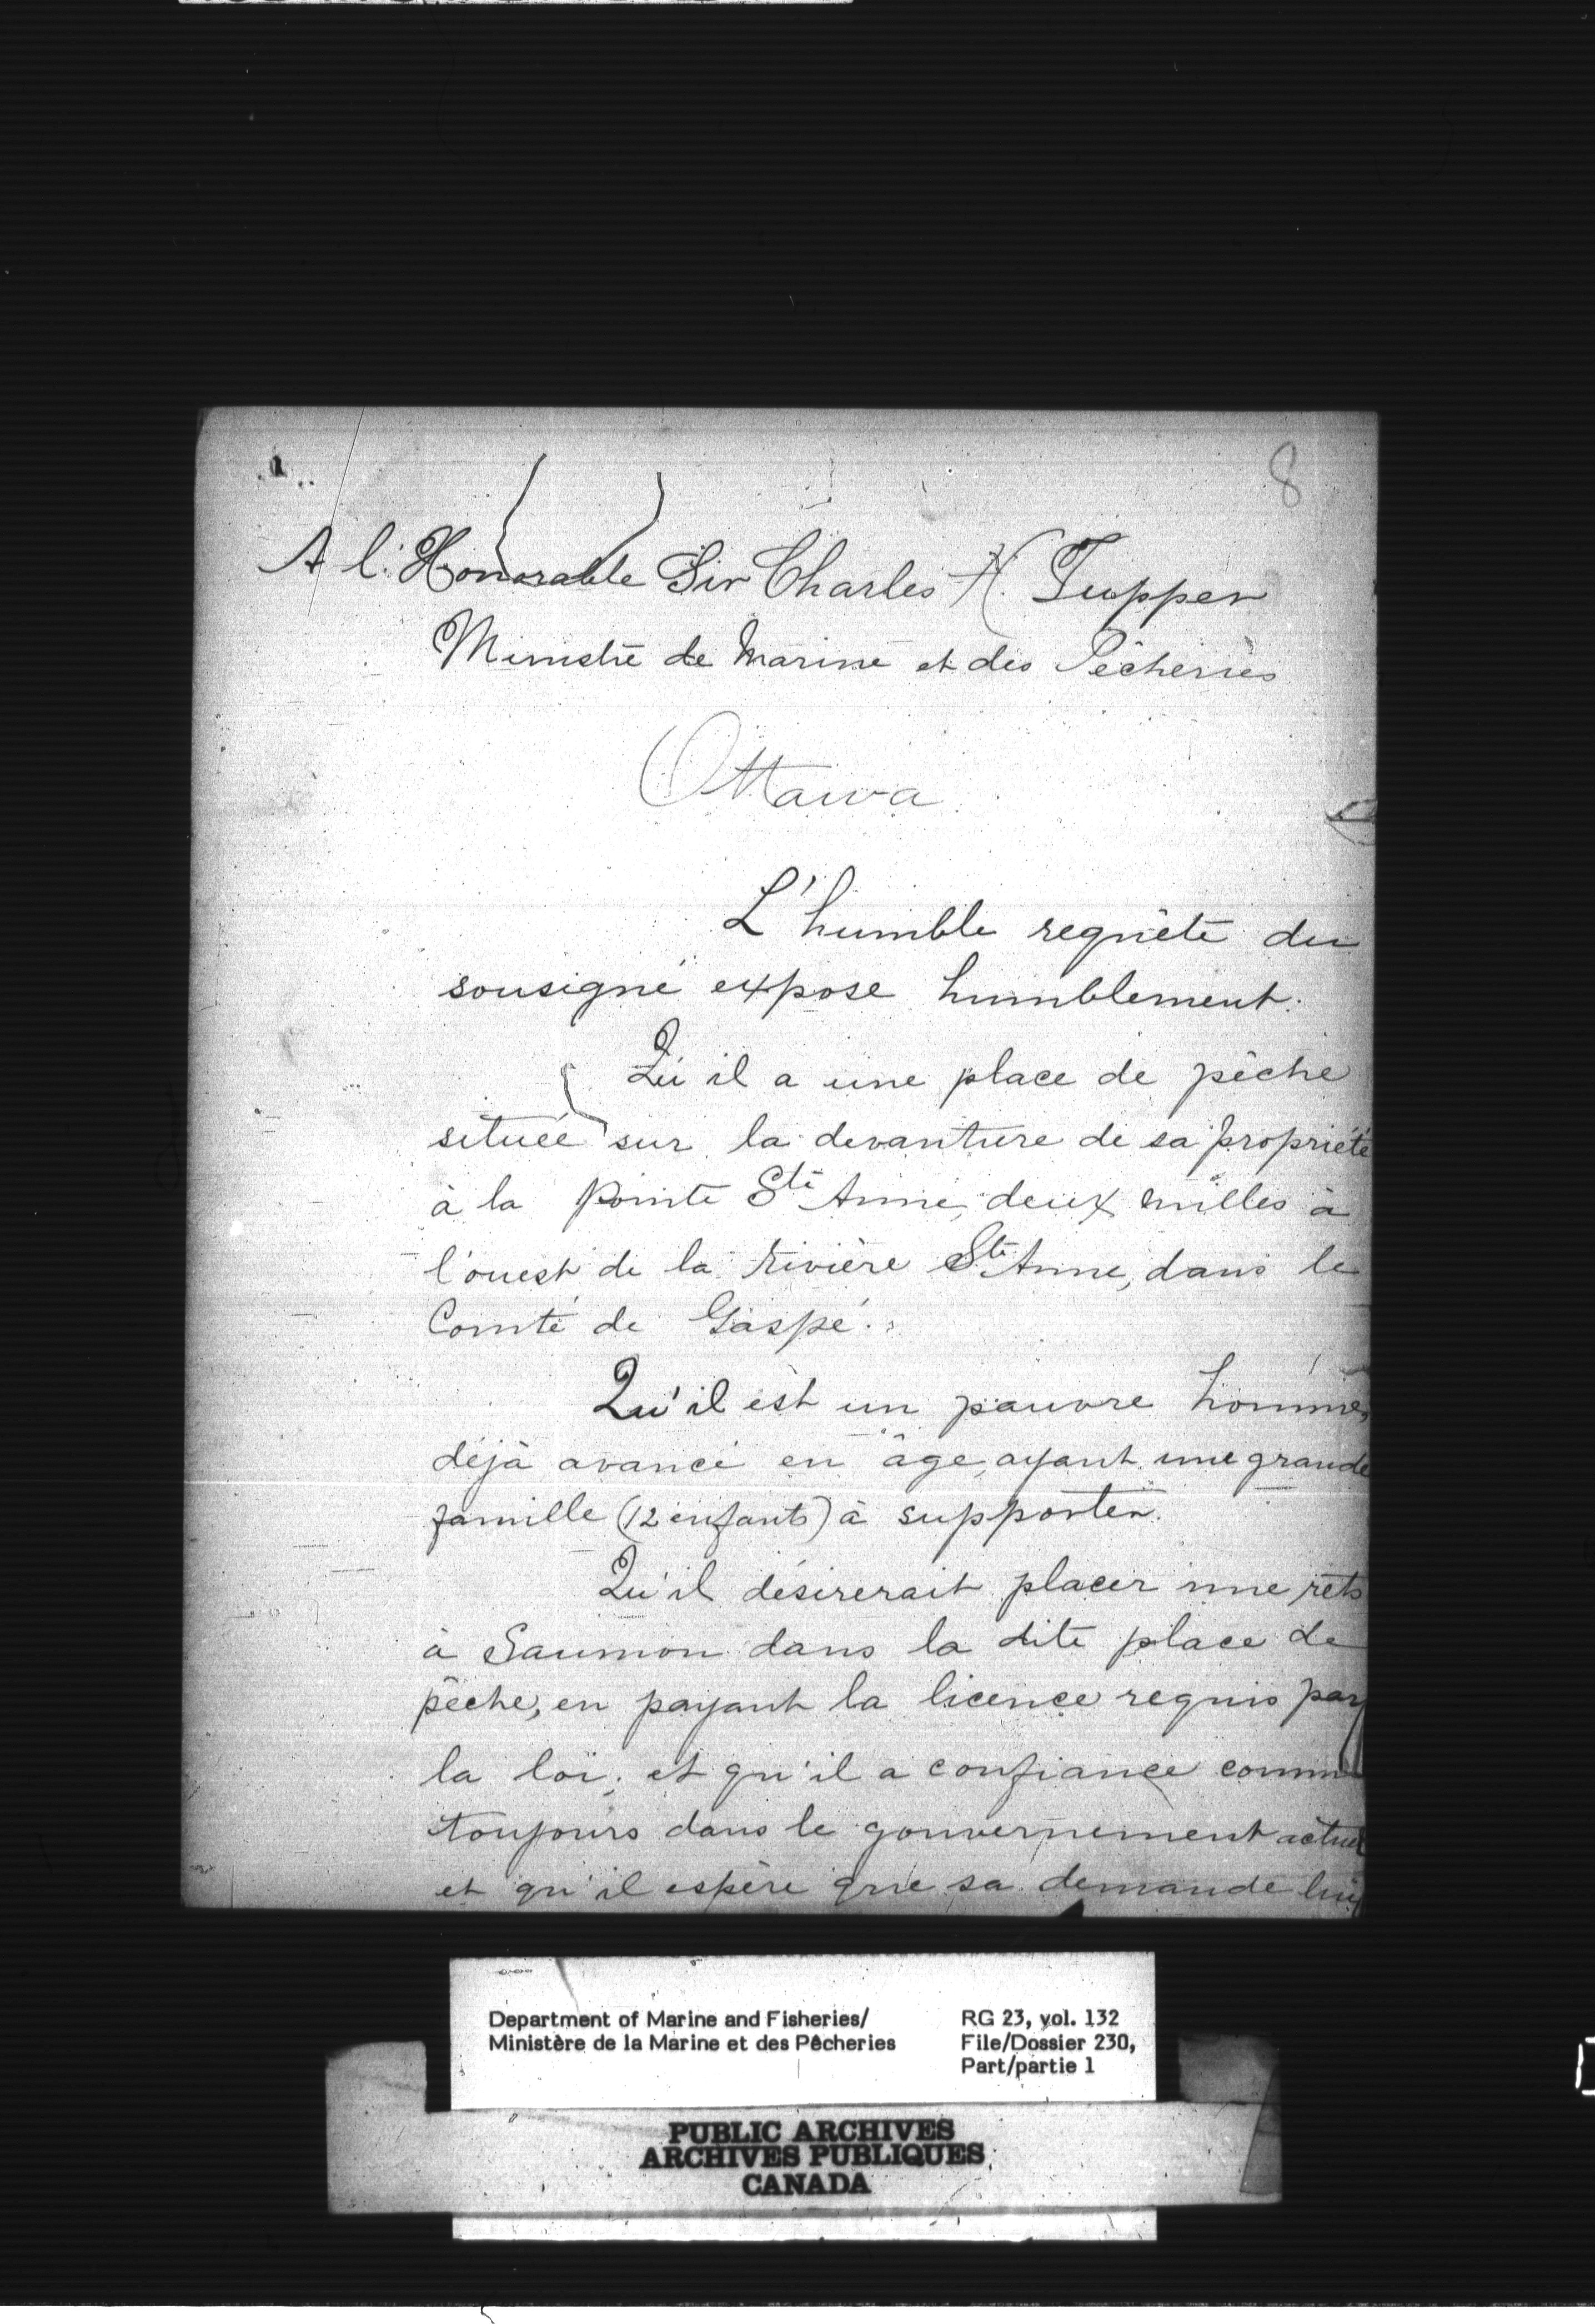 8
A l'Honorable Sir Charles H. Tupper
Ministre de Marine et des Pêcheries
Ottawa
L'humble requête du
sousigné expose humblement.
Qu'il a une place de pêche
située sur la devanture de sa propriété
à la Pointe Ste Anne, deux milles à
l'ouest de la Rivière Ste Anne, dans le
Comté de Gaspé.
Qu'il est un pauvre homme,
déjà avancé en âge, ayant une grande
famille (12 enfants) à supporter.
Qu'il désirerait placer une rets
à Saumon dans la dite place de
pêche, en payant la licence requis par
la loi, et qu'il a confiance comme
toujours dans le gouvernement actuel
et qu'il espère que sa demande lui
Department of Marine and Fisheries/
Ministère de la Marine et des Pêcheries
RG 23, vol. 132
File/Dossier 230,
Part/partie 1
PUBLIC ARCHIVES
ARCHIVES PUBLIQUES
CANADA